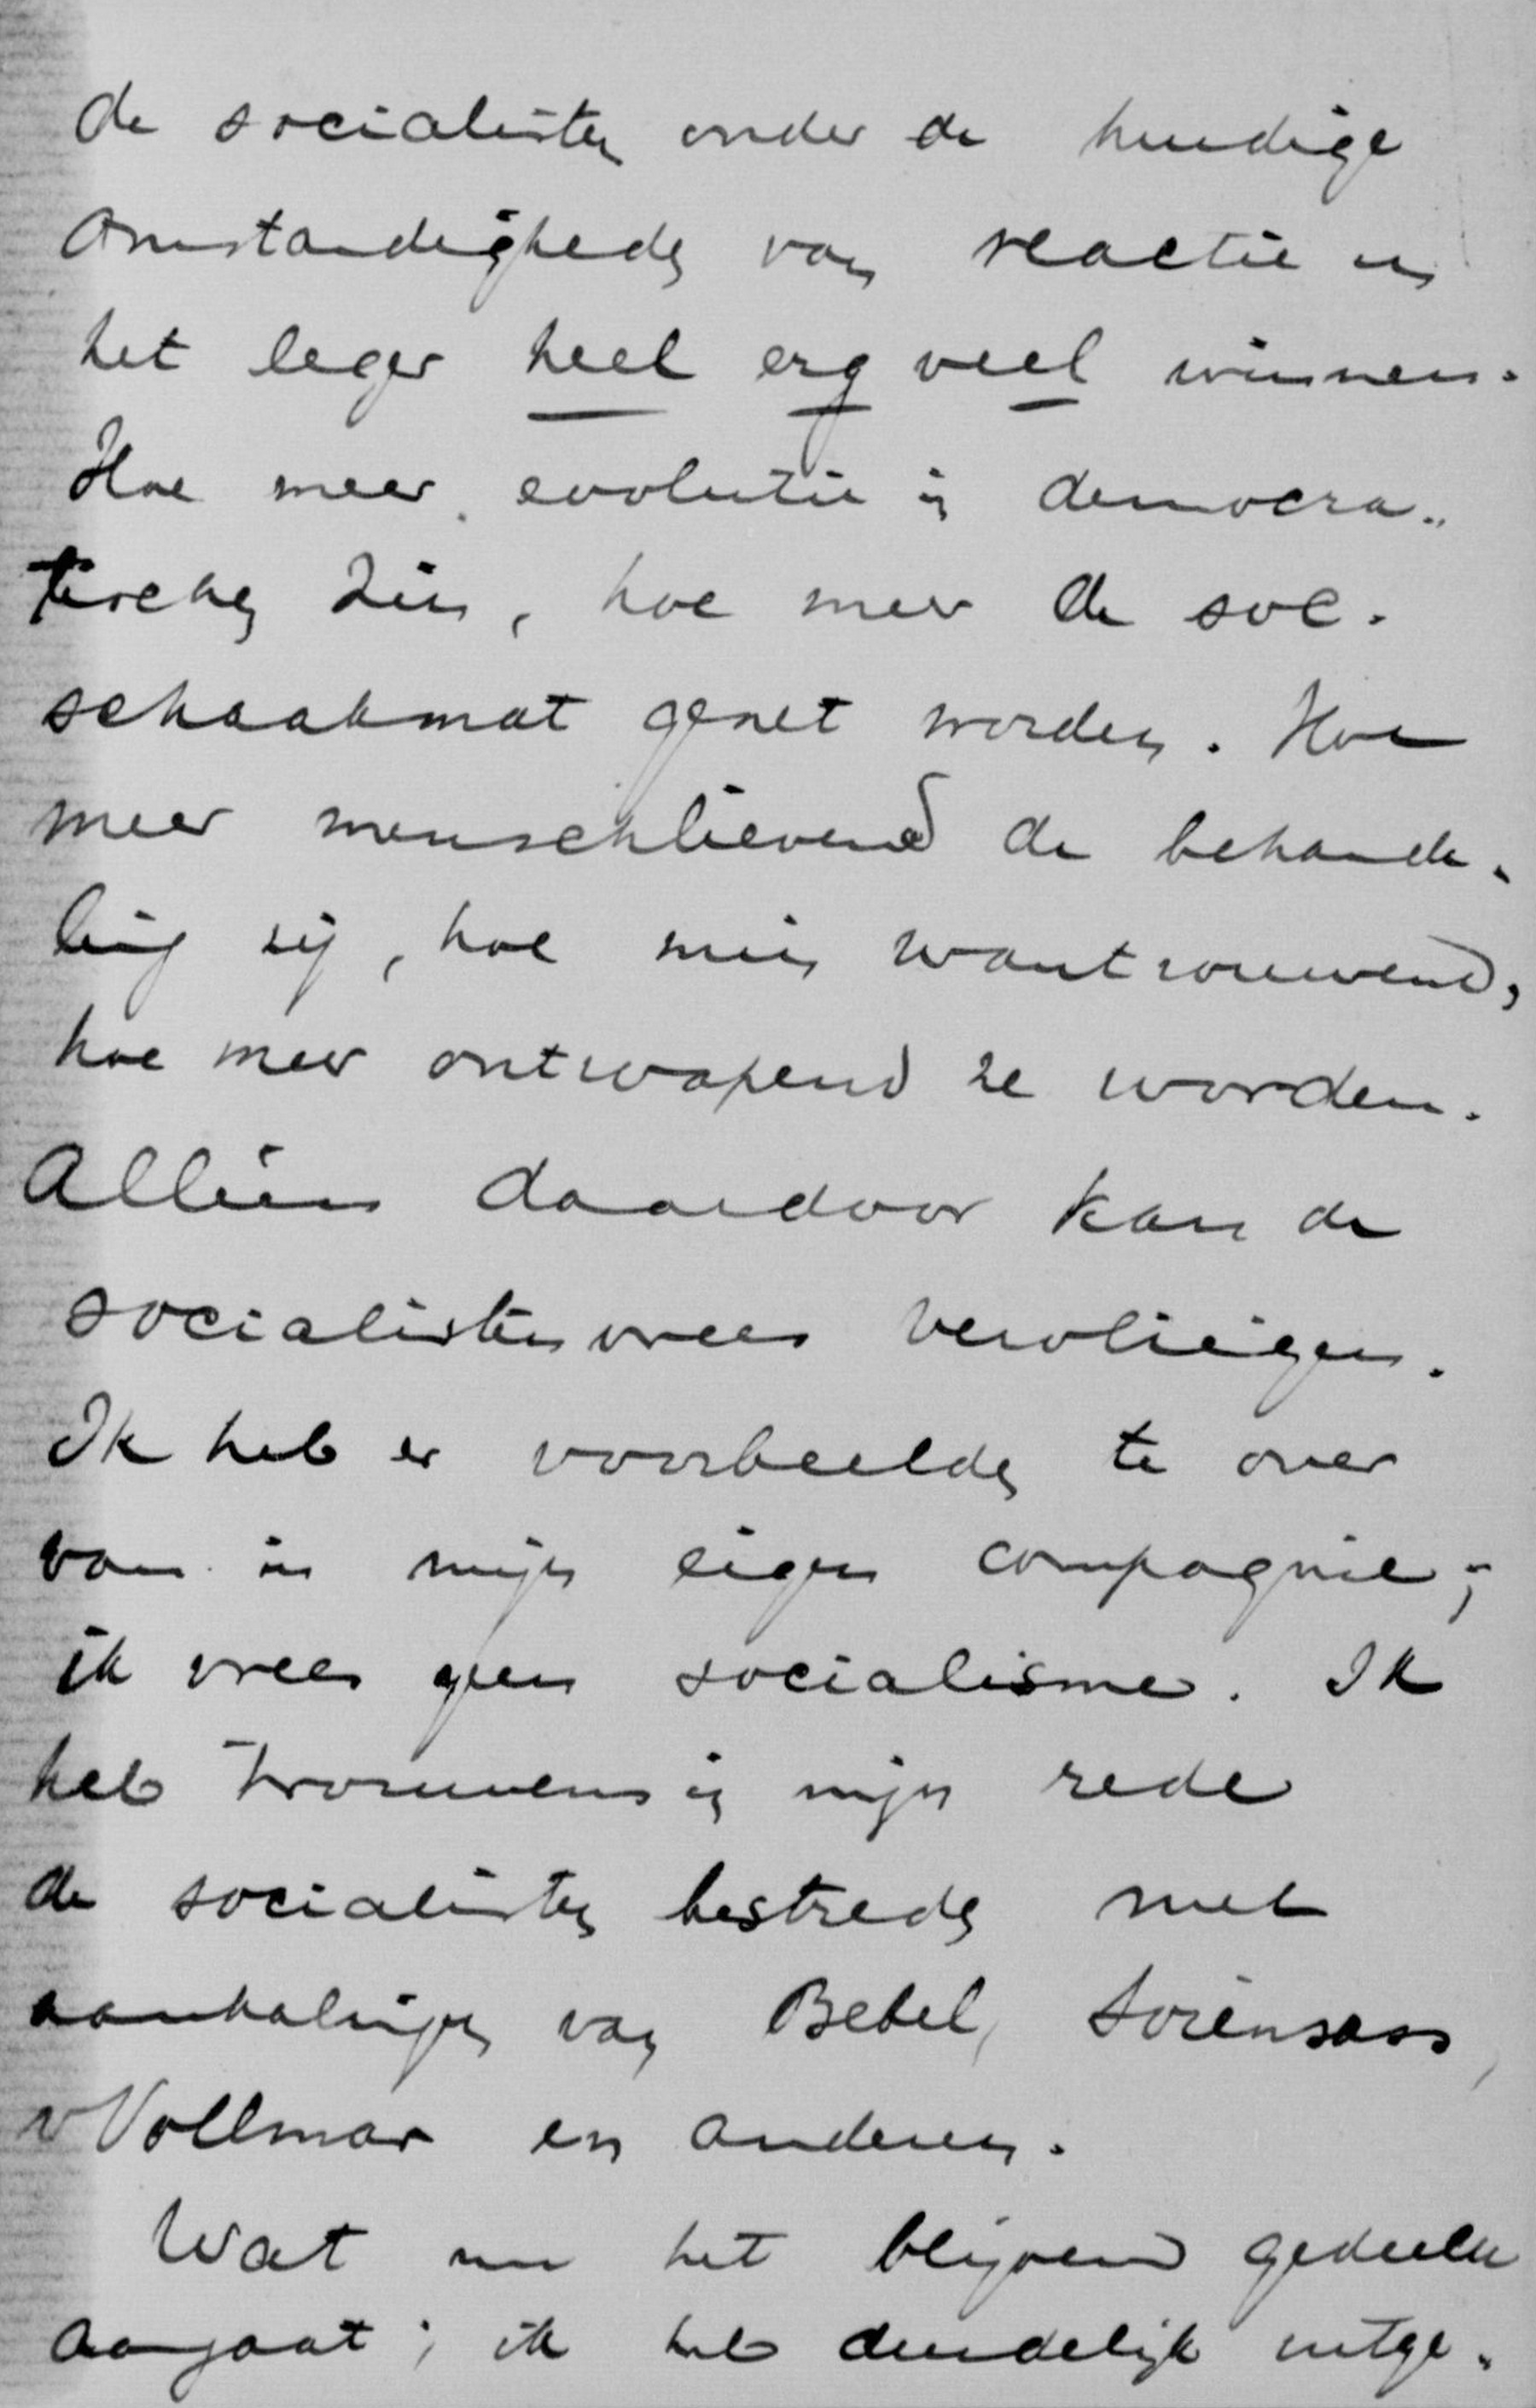 de socialisten onder de huidige
omstandigheden van reactie in
het leger heel erg veel winnen.
Hoe meer evolutie in democra„
tischen zin, hoe meer de soc.
schaakmat gezet worden. Hoe
meer menschlievend de behande„
ling zij, hoe min wantrouwend,
hoe meer ontwapend ze worden.
Alléén daardoor kan de
socialistenvrees vervliegen.
Ik heb er voorbeelden te over
van in mijn eigen compagnie;
ik vrees geen socialisme. Ik
heb trouwens in mijn rede
de socialisten bestreden met
aanhalingen van Bebel,
v Vollmar en anderen.
Wat nu het blijvend gedeelte
aangaat; ik heb duidelijk uitge„